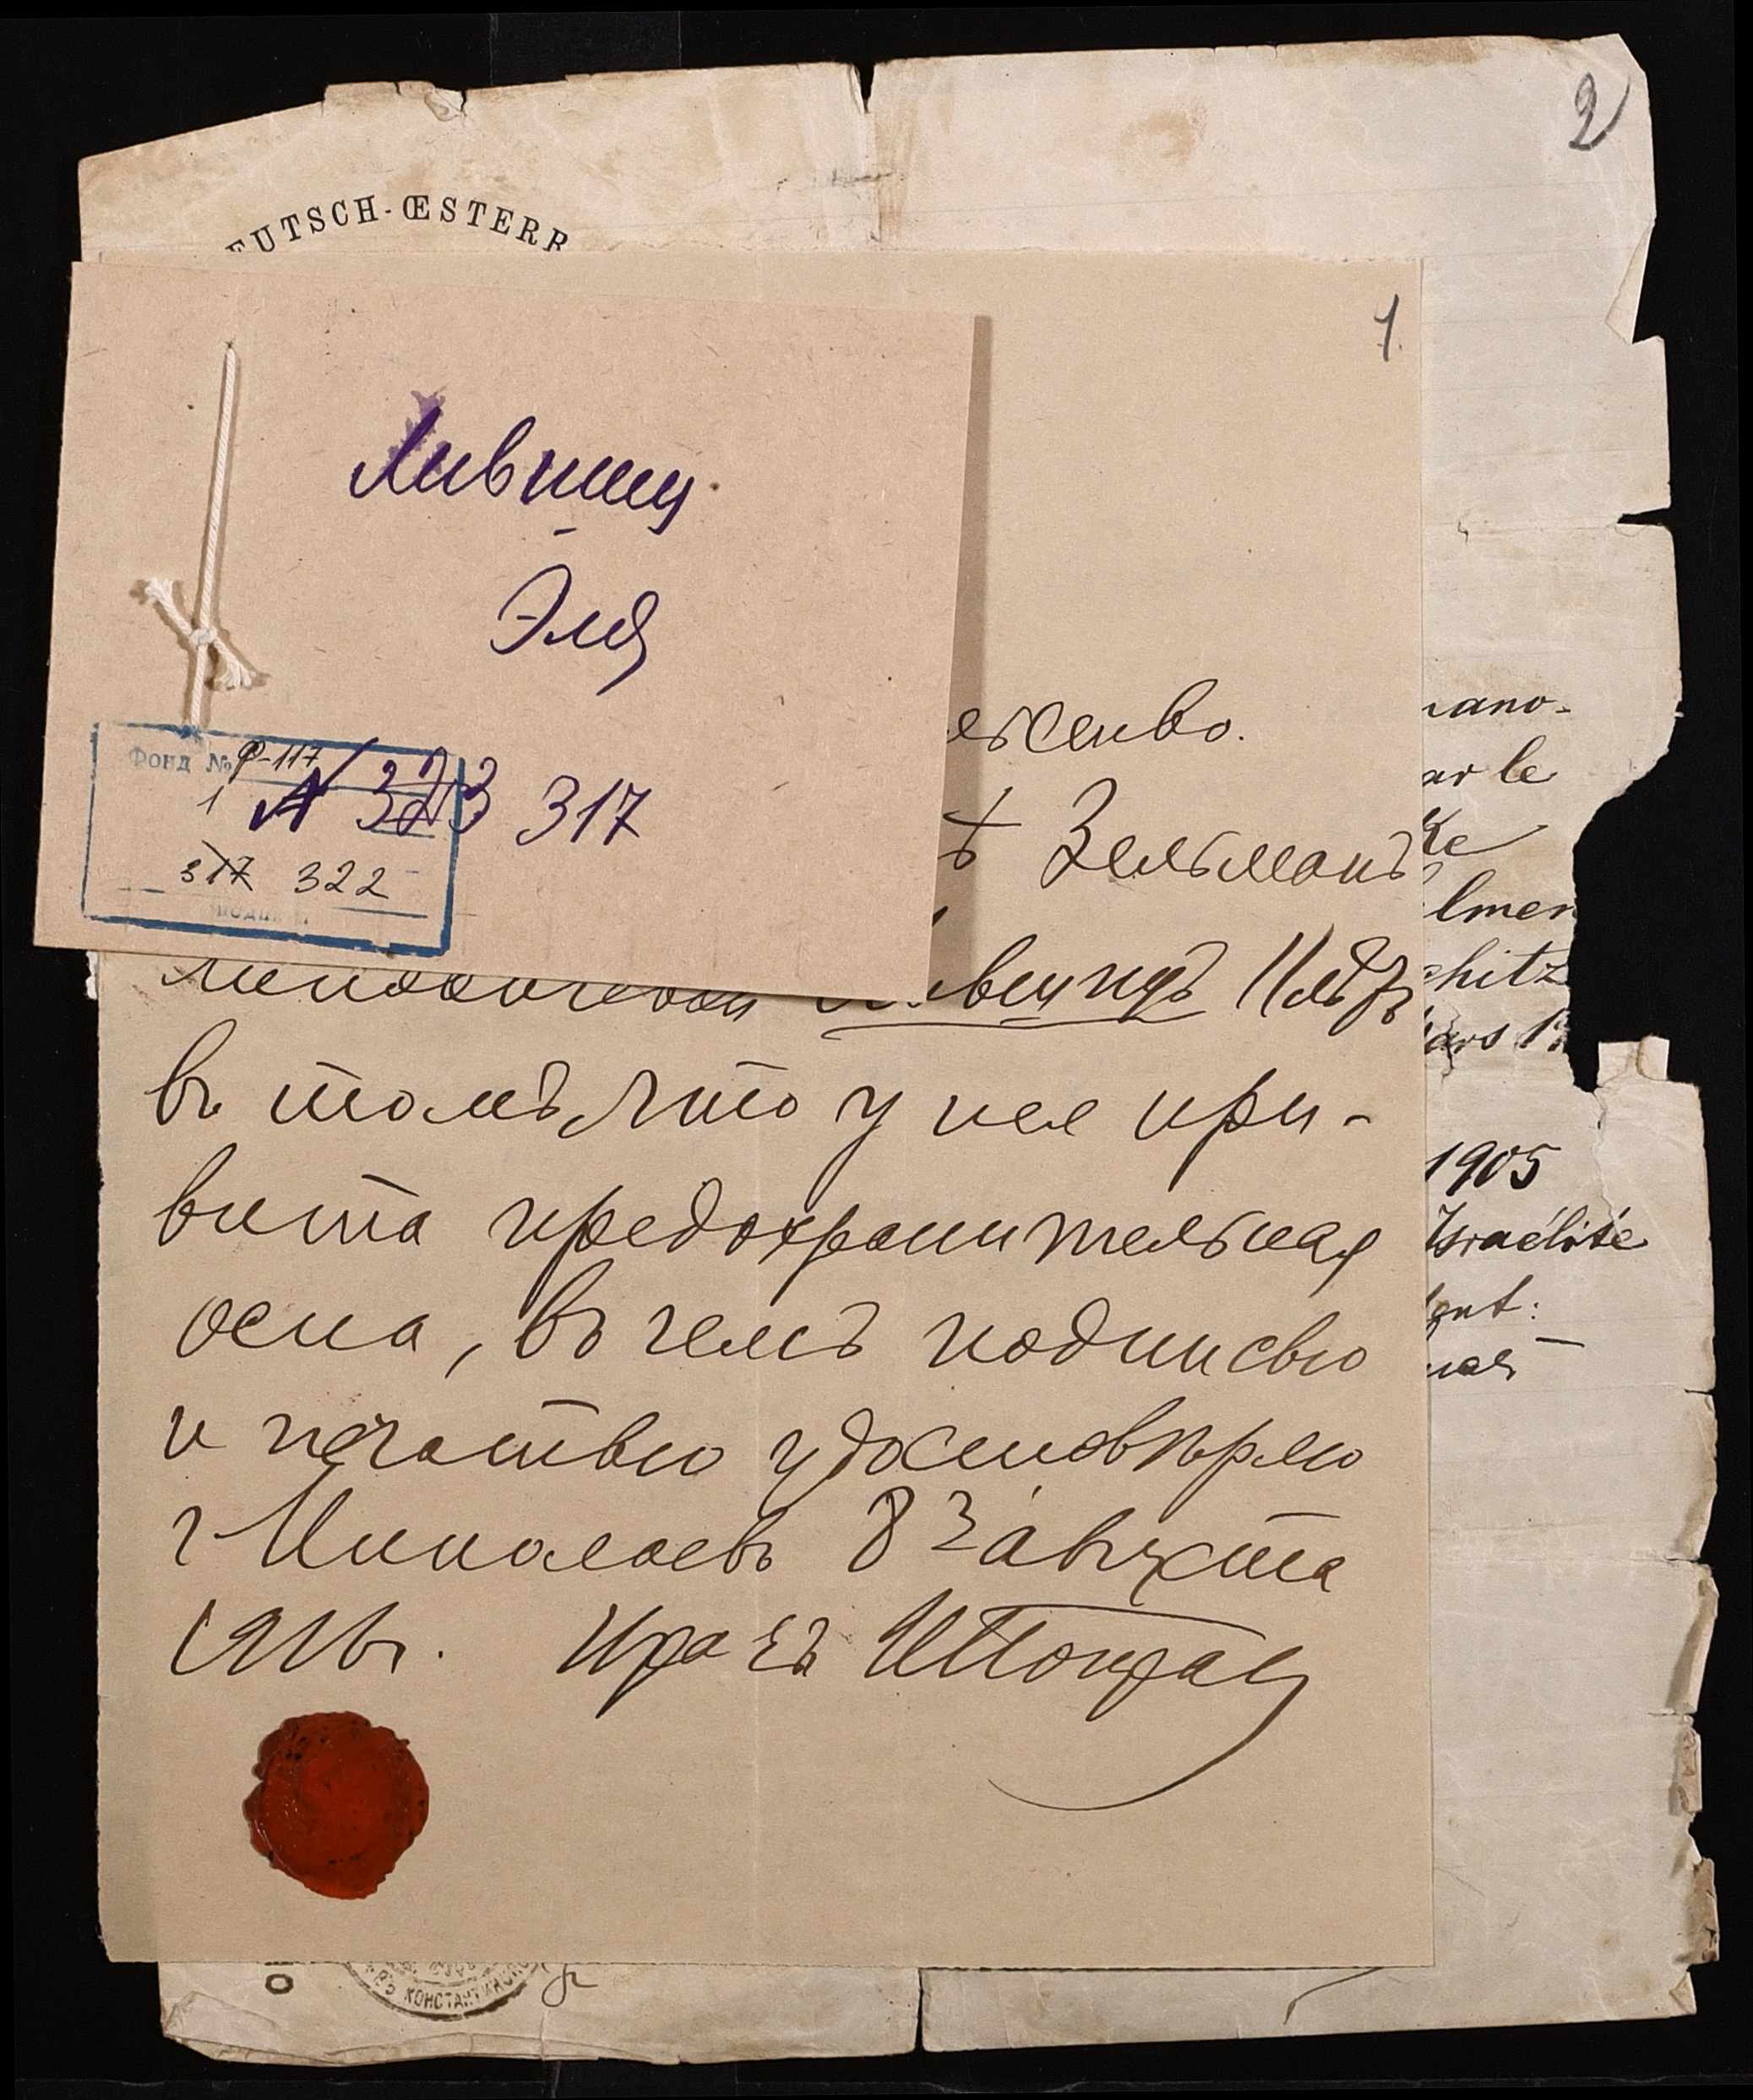 2
EUTSCH-ŒSTERR
1
Лившиц
Эля
Фонд № Ф-117
1
N 323 317
317 322
ельство.
ъ Зельманъ
Лившицъ
въ томъ что у нея при-
вита предохранительная
оспа, въ чемъ подписью
и печатью удостовѣряю
г Николаевъ 8 23 августа
191 г. Врачъ
ano-
ar le
Ke
lmen
chitz
ars 1
1905
Israélite
КОНСТАНТИНО